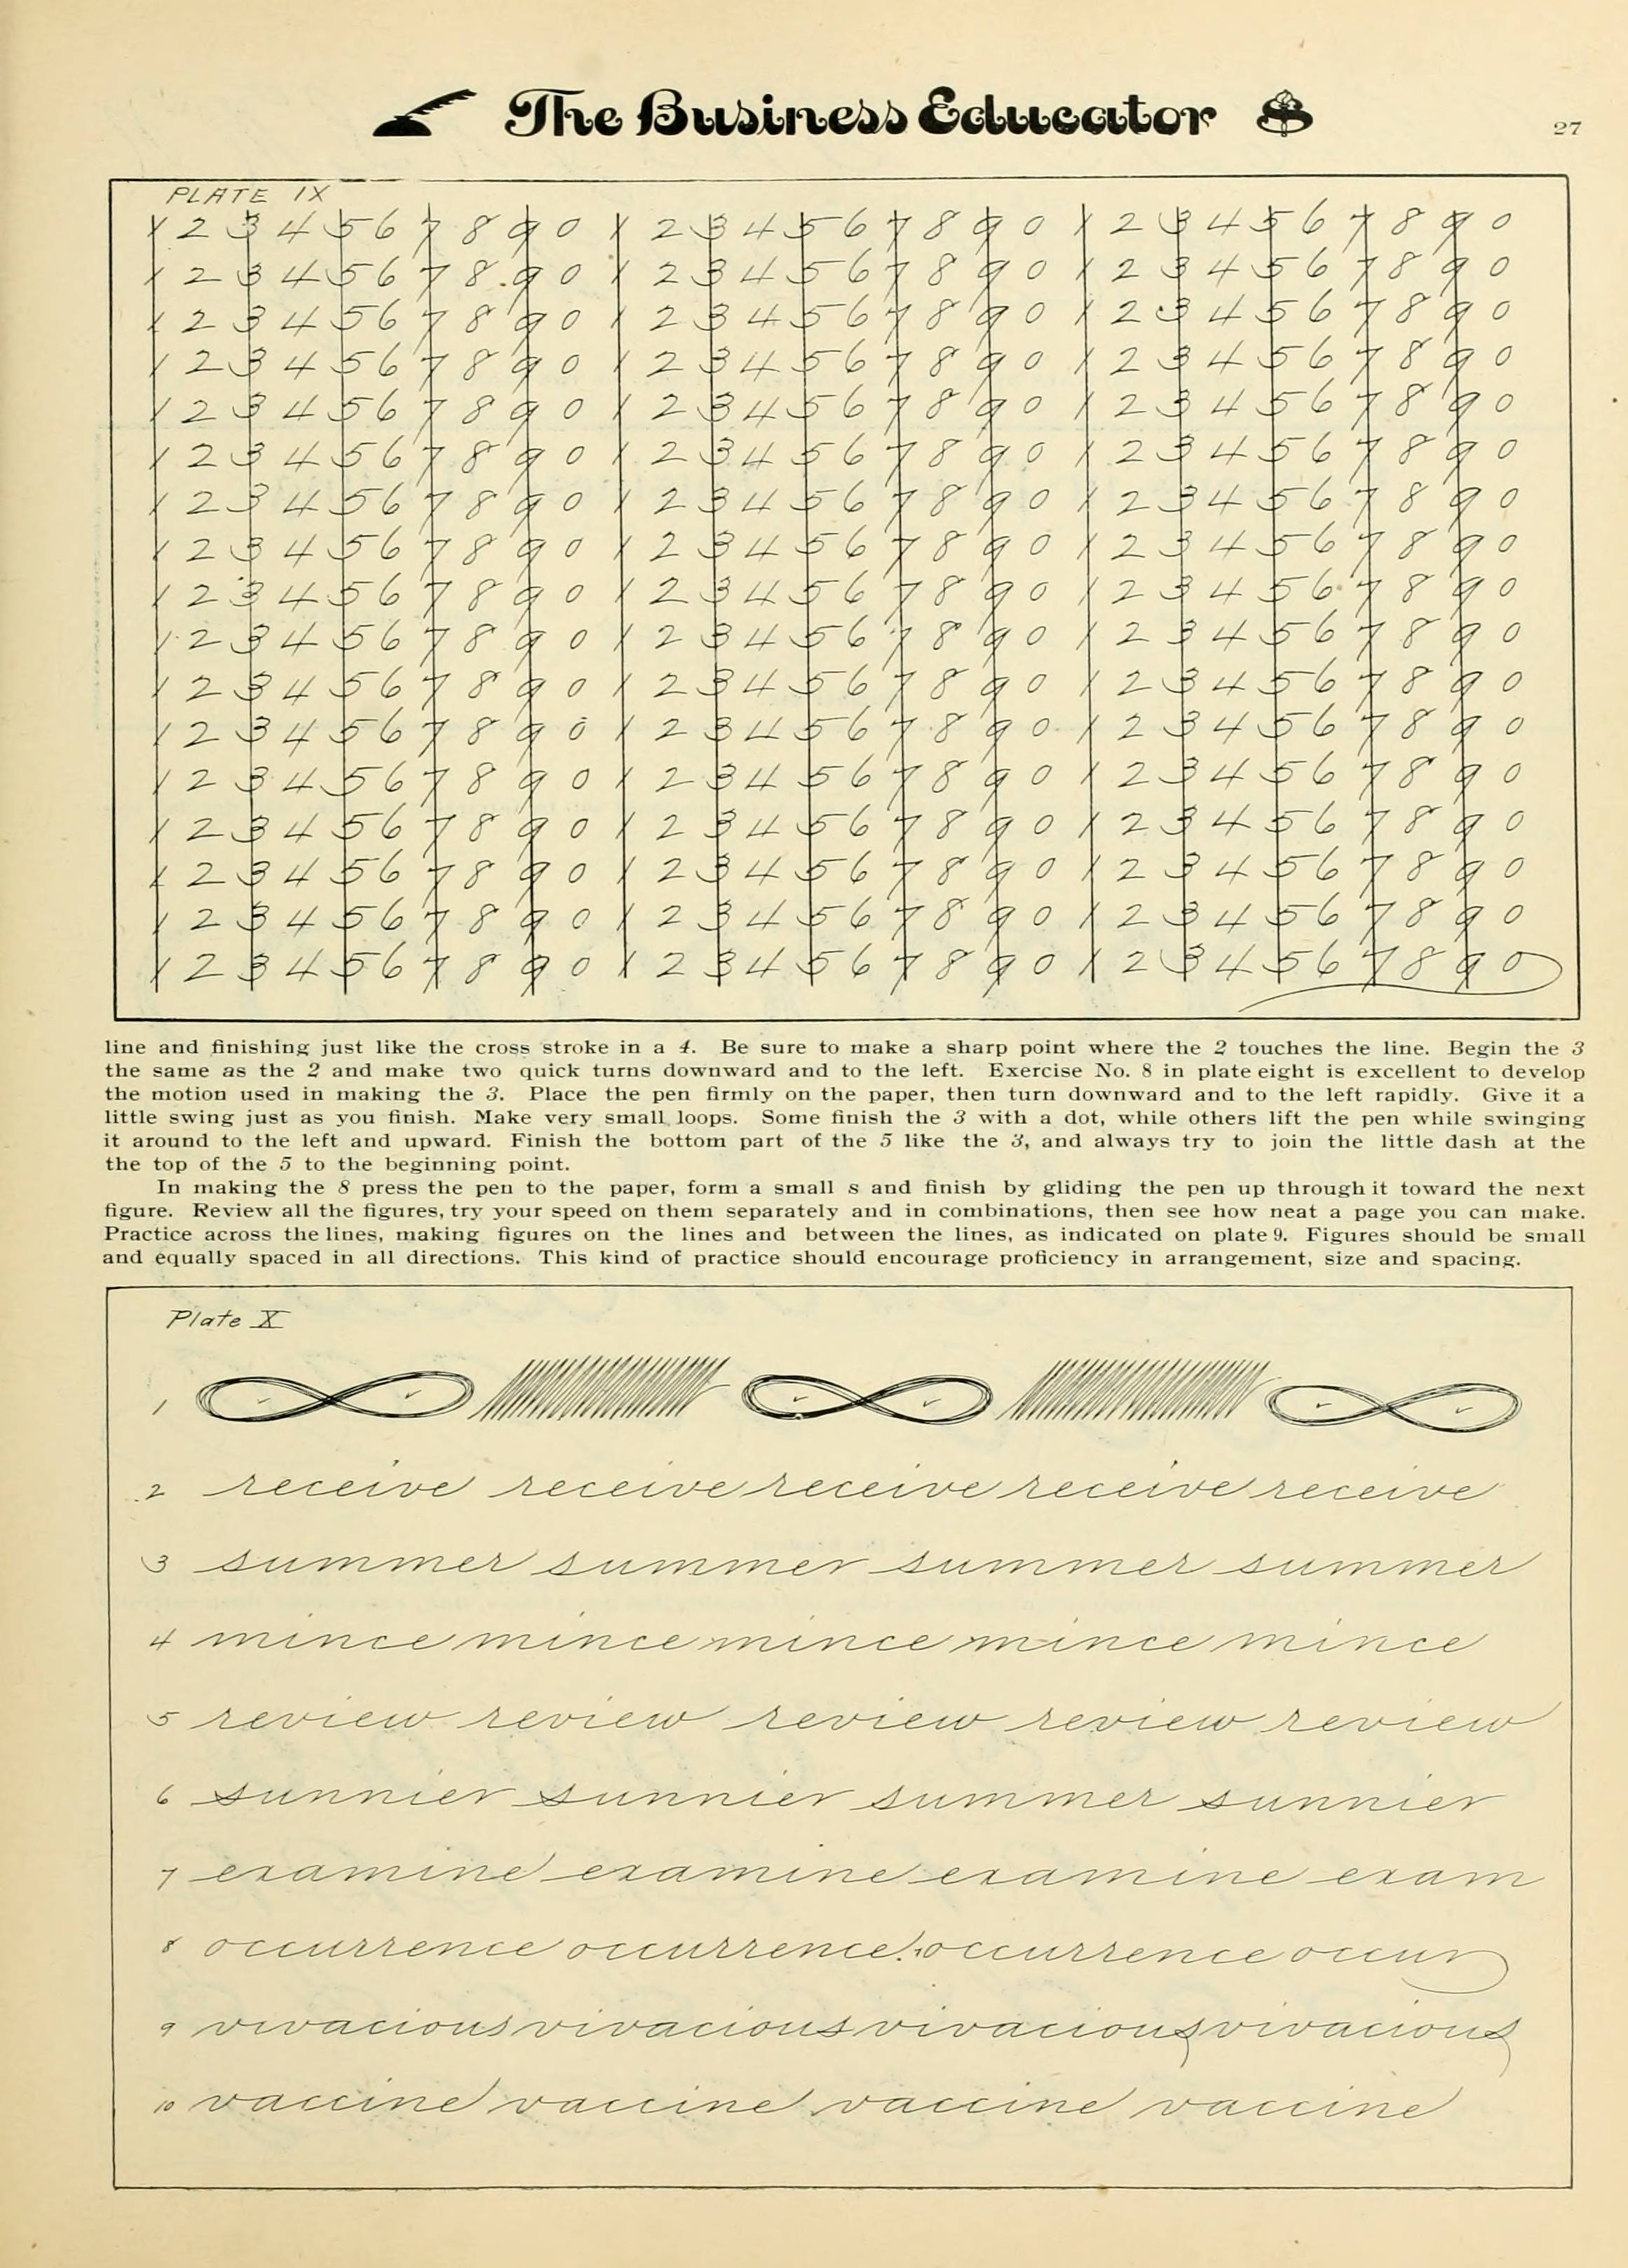 The Business Educator
27
PLATE IX
1 2 3 4 5 6 7 8 9 0 1 2 3 4 5 6 7 8 9 0 1 2 3 4 5 6 7 8 9 0
1 2 3 4 5 6 7 8 9 0 1 2 3 4 5 6 7 8 9 0 1 2 3 4 5 6 7 8 9 0
1 2 3 4 5 6 7 8 9 0 1 2 3 4 5 6 7 8 9 0 1 2 3 4 5 6 7 8 9 0
1 2 3 4 5 6 7 8 9 0 1 2 3 4 5 6 7 8 9 0 1 2 3 4 5 6 7 8 9 0
1 2 3 4 5 6 7 8 9 0 1 2 3 4 5 6 7 8 9 0 1 2 3 4 5 6 7 8 9 0
1 2 3 4 5 6 7 8 9 0 1 2 3 4 5 6 7 8 9 0 1 2 3 4 5 6 7 8 9 0
1 2 3 4 5 6 7 8 9 0 1 2 3 4 5 6 7 8 9 0 1 2 3 4 5 6 7 8 9 0
1 2 3 4 5 6 7 8 9 0 1 2 3 4 5 6 7 8 9 0 1 2 3 4 5 6 7 8 9 0
1 2 3 4 5 6 7 8 9 0 1 2 3 4 5 6 7 8 9 0 1 2 3 4 5 6 7 8 9 0
1 2 3 4 5 6 7 8 9 0 1 2 3 4 5 6 7 8 9 0 1 2 3 4 5 6 7 8 9 0
1 2 3 4 5 6 7 8 9 0 1 2 3 4 5 6 7 8 9 0 1 2 3 4 5 6 7 8 9 0
1 2 3 4 5 6 7 8 9 0 1 2 3 4 5 6 7 8 9 0 1 2 3 4 5 6 7 8 9 0
1 2 3 4 5 6 7 8 9 0 1 2 3 4 5 6 7 8 9 0 1 2 3 4 5 6 7 8 9 0
1 2 3 4 5 6 7 8 9 0 1 2 3 4 5 6 7 8 9 0 1 2 3 4 5 6 7 8 9 0
1 2 3 4 5 6 7 8 9 0 1 2 3 4 5 6 7 8 9 0 1 2 3 4 5 6 7 8 9 0
1 2 3 4 5 6 7 8 9 0 1 2 3 4 5 6 7 8 9 0 1 2 3 4 5 6 7 8 9 0
1 2 3 4 5 6 7 8 9 0 1 2 3 4 5 6 7 8 9 0 1 2 3 4 5 6 7 8 9 0
line and finishing just like the cross stroke in a 4. Be sure to make a sharp point where the 2 touches the line. Begin the 3
the same as the 2 and make two quick turns downward and to the left. Exercise No. 8 in plate eight is excellent to develop
the motion used in making the 3. Place the pen firmly on the paper, then turn downward and to the left rapidly. Give it a
little swing just as you finish. Make very small loops. Some finish the 3 with a dot, while others lift the pen while swinging
it around to the left and upward. Finish the bottom part of the 5 like the 3, and always try to join the little dash at the
the top of the 5 to the beginning point.
In making the 8 press the pen to the paper, form a small s and finish by gliding the pen up through it toward the next
figure. Review all the figures, try your speed on them separately and in combinations, then see how neat a page you can make.
Practice across the lines, making figures on the lines and between the lines, as indicated on plate 9. Figures should be small
and equally spaced in all directions. This kind of practice should encourage proficiency in arrangement, size and spacing.
Plate X
1
2 receive receive receive receive receive
3 summer summer summer summer
4 mince mince mince mince mince
5 review review review review review
6 sunnier sunnier summer sunnier
7 examine examine examine exam
8 occurrence occurrence occurrence occur
9 vivacious vivacious vivacious vivacious
10 vaccine vaccine vaccine vaccine